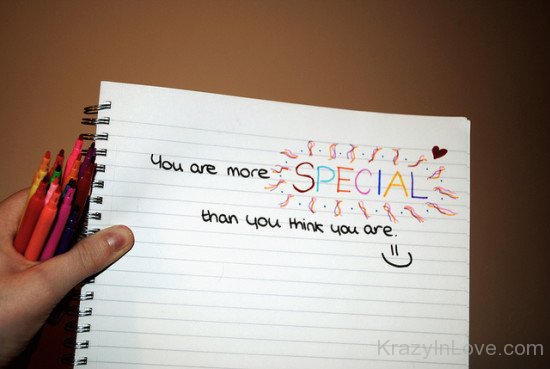 You are more SPECIAL
than you think you are.
KrazyInLove.com